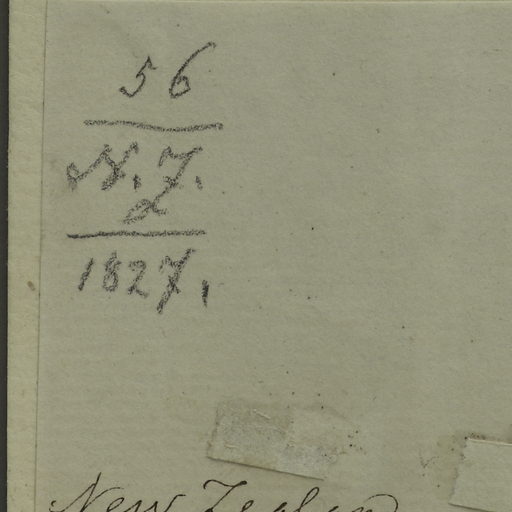 56
N. Z.
1827.
New Zealan